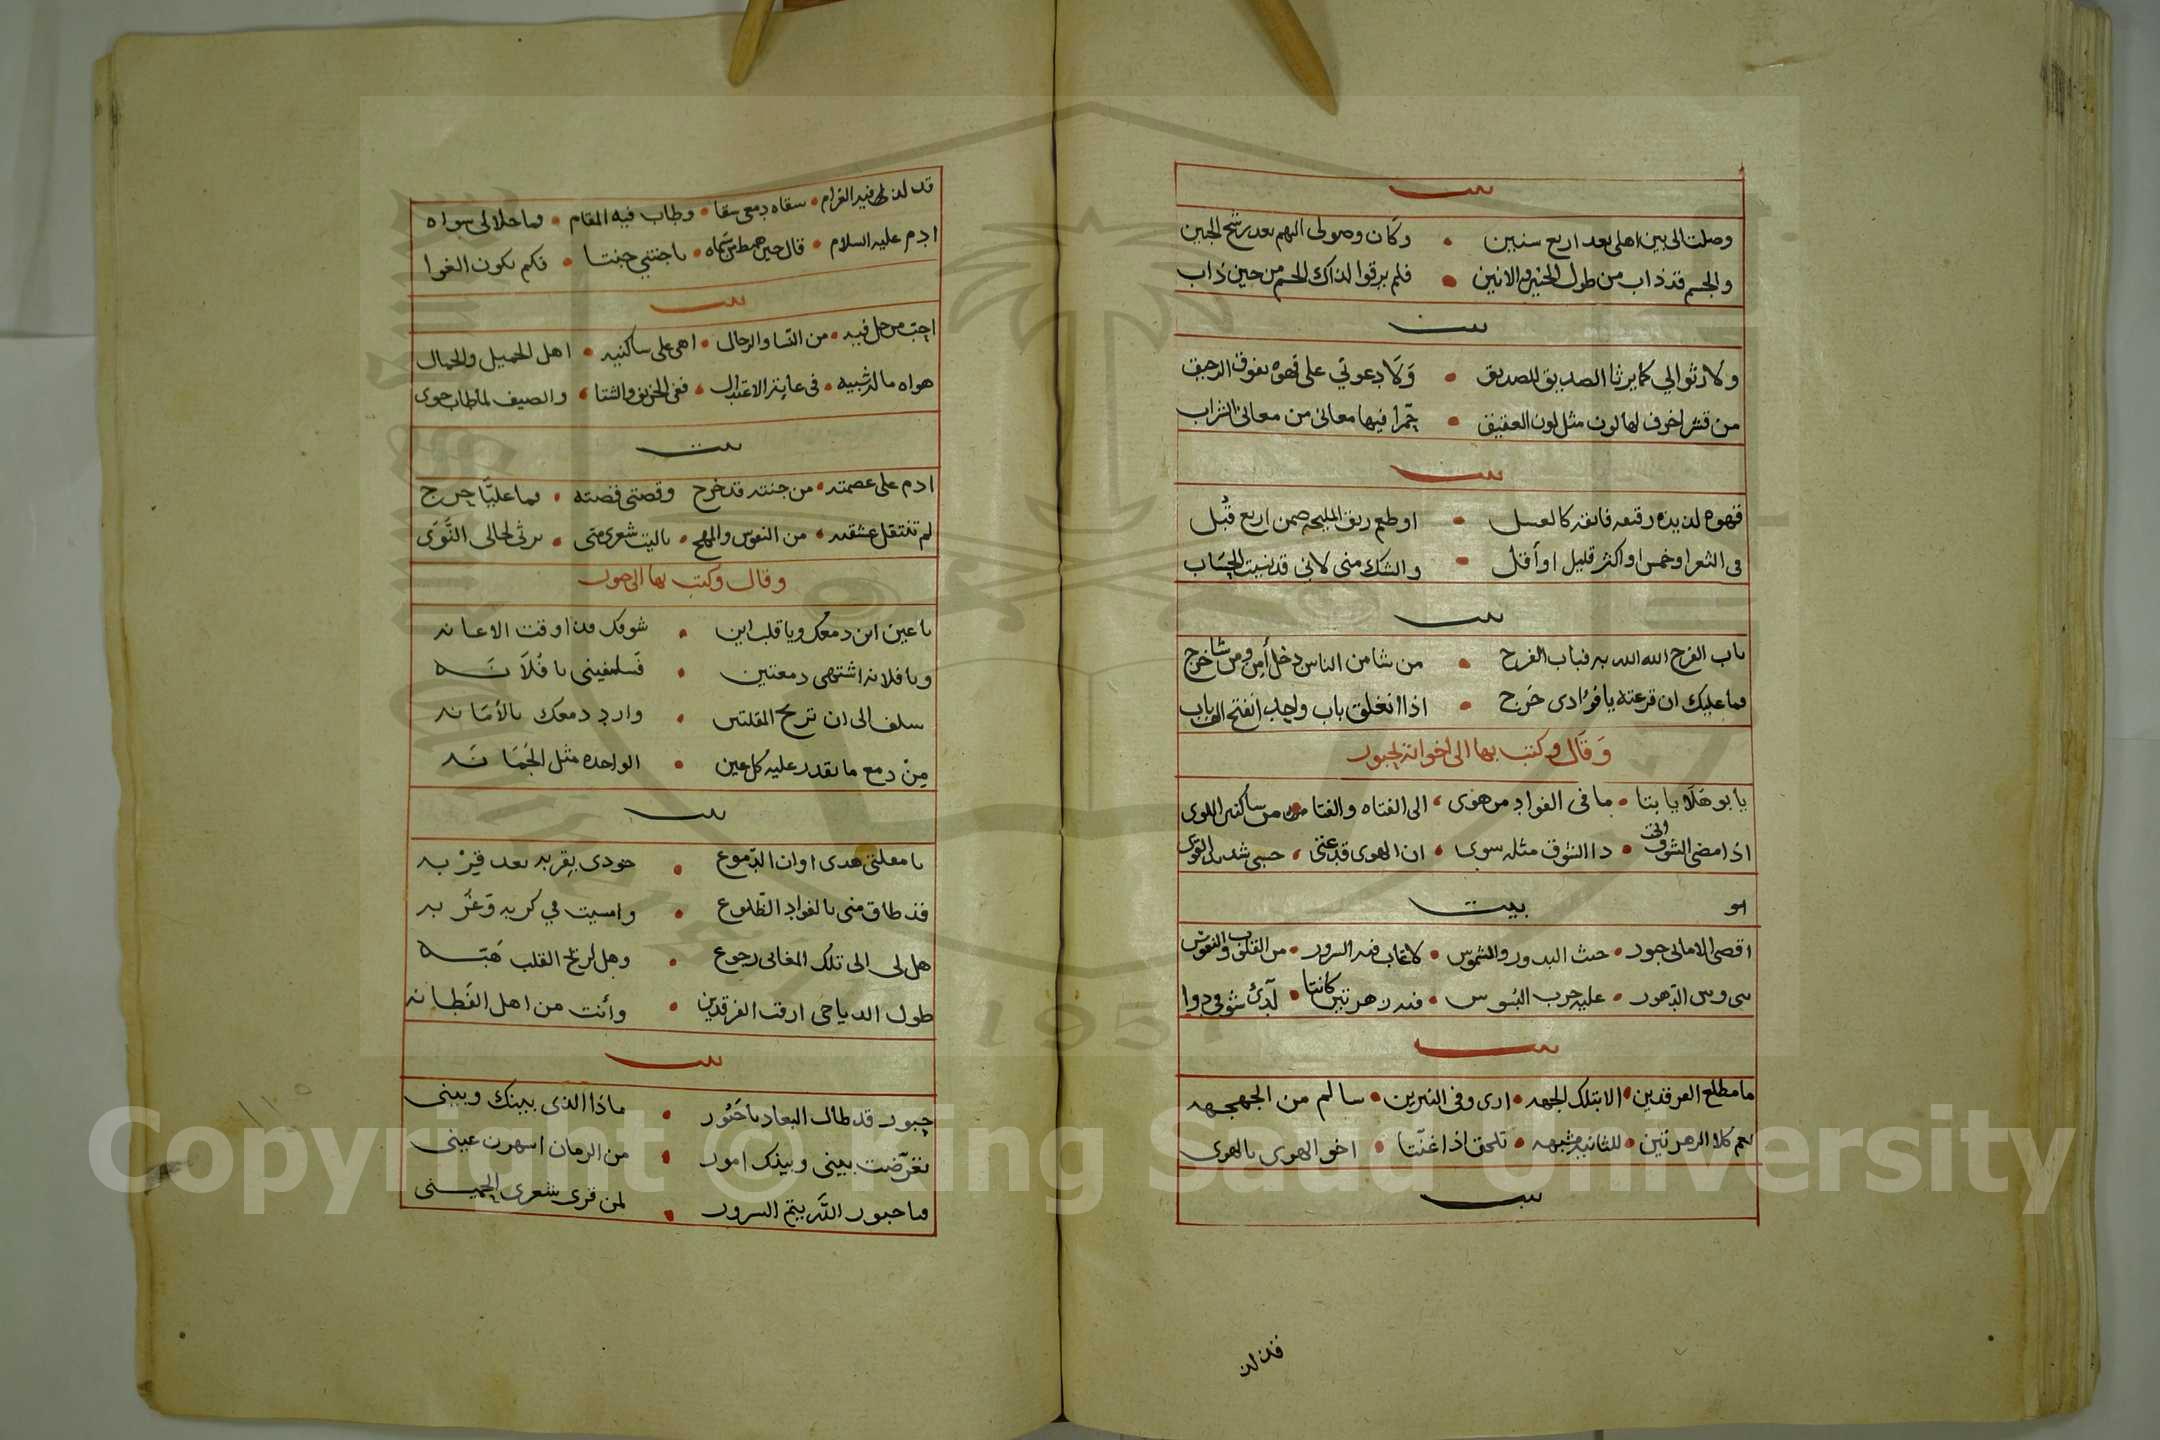 بيت
وصلت الى بين اهلى بعد اربع سنين • وكان وصولى اليهم بعد رشح الجبين
والجسم قد ذاب من طول الحنين والانين • فلم يرقوا لذاك الجسم من حين ذاب
بيت
ولا رثوا لي كما يرثا الصديق للصديق • ولا دعوني على قهوه تفوق الرحيق
من قشر اخرف لها لون مثل لون العقيق • حمرا فيها معانى من معانى الشراب
بيت
قهوه لذيذه رقيقه فايقه كالعسل • او طعم ريق المليحه ضمن اربع قُبل
فى الثغر او خمس او اكثر قليل او أقل • والشك منى لانى قد نسيت الحساب
بيت
باب الفرح الله الله به فباب الفرح • من شا من الناس دخل أمن ومن شا خرج
وما عليك ان قرعته يا فؤادى حرج • اذا انغلق باب واحد انفتح الف باب
وقال وكتب بها الى اخوانه لحبور
يابو هلا يا بنا • ما فى الفواد من هوى • الى الفتاه والفتا • من ساكنين اللوى
اذا مضى الشوق اتى • دا الشوق مثله سوى • ان الهوى قد عتى • حبى شديد القوى
بيت
اقصى الامانى حبور • حيث البدور والشموس • لا غاب فيه السرور • من القلوب والنفوس
الدهور • عليه حرب البُوس • فيه زهرتين كانتا • شوقى دوا
بيت
ما مطلع الفرقدين • الا بتلك الجهه • ارى وفى النيرين • سالم من الجهجهه
نعم كلا الزهرتين • للثانيه مشبهه • تلحق اذا غنّتا • اخو الهوى بالهوى
بيت
قد لذ
قد لذ لى فيه الغرام • سقاه دمعى سقا • وطاب فيه المقام • وما حلا لى سواه
ادم عليه السلام • قال حين هبط من سماه • يا جنتي جنتا • فكم يكون الغوا
بيت
احب من حل فيه • من النسا والرجال • اهى على ساكنيه • اهل الجميل والجمال
هواه ماله شبيه • فى غاية الاعتدال • ففى الخريف والشتا • والصيف لما طاب جوى
بيت
ادم على عصمته • من جنته قد خرج وقصتى قصته • وما عليَّا حرج
لم تنتقل عشقته • من النفوس والمهج • ياليت شعرى متى • يرثى لحالى النَّوَى
وقال وكتب بها الى حبور
يا عين اين دمعك ويا قلب اين • شوقك فذا وقت الاعانه
ويا فلانه اشتهى دمعتين • فسلفينى يا فُلانَه
سلف الى ان تريح المقلتين • وارد دمعك بالأمانه
مِنْ دمع ما يقدر عليه كل عين • الواحده مثل الجُمَانَه
بيت
يا مقلتى هدى اوان الدّموع • جودى بقربه بعد قربه
قد طاق منى بالفواد الظلوع • وامسيت في كربه وغُربه
هل لى الى تلك المغانى رجوع • وهل لريح القلب هَبّه
طول الدياجى ارقب الفرقدين • وأنت من اهل الفَطانه
بيت
حبور قد طال البعاد يا حَبُور • ماذا الذى بينك وبينى
تعرّضت بينى وبينك امور • من الزمان اسهرت عينى
وما حبور الله يتم السرور • لمن قرى شعرى الحمينى